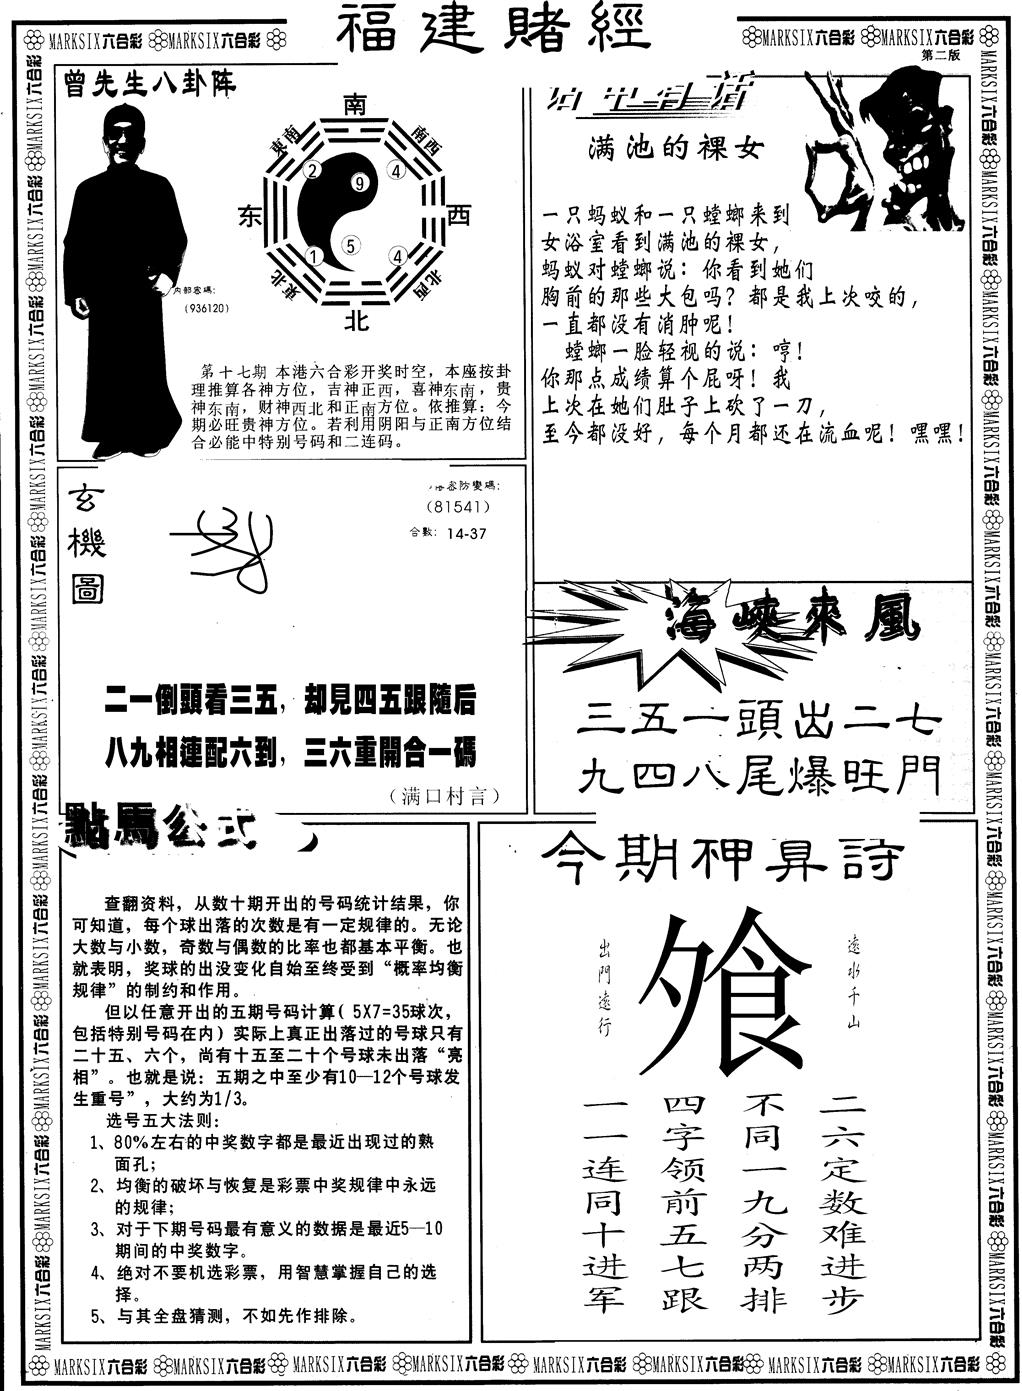 福建賭經
第二版
MARKSIX六合彩 MARKSIX六合彩
MARKSIX六合彩 MARKSIX六合彩
曾先生八卦阵
南
東南
南西
2
9
4
东
西
1
5
4
東北
北西
北
内部密碼:
(936120)
第十七期 本港六合彩开奖时空，本座按卦
理推算各神方位，吉神正西，喜神东南，贵
神东南，财神西北和正南方位。依推算：今
期必旺贵神方位。若利用阴阳与正南方位结
合必能中特别号码和二连码。
满池的裸女
一只蚂蚁和一只螳螂来到
女浴室看到满池的裸女，
蚂蚁对螳螂说：你看到她们
胸前的那些大包吗？都是我上次咬的，
一直都没有消肿呢！
螳螂一脸轻视的说：哼！
你那点成绩算个屁呀！我
上次在她们肚子上砍了一刀，
至今都没好，每个月都还在流血呢！嘿嘿！
玄機圖
密防變碼:
(81541)
合數: 14-37
二一倒頭看三五，却見四五跟隨后
八九相連配六到，三六重開合一碼
（满口村言）
海峽來風
三五一頭出二七
九四八尾爆旺門
點馬公式
查翻资料，从数十期开出的号码统计结果，你
可知道，每个球出落的次数是有一定规律的。无论
大数与小数，奇数与偶数的比率也都基本平衡。也
就表明，奖球的出没变化自始至终受到“概率均衡
规律”的制约和作用。
但以任意开出的五期号码计算( 5X7=35球次，
包括特别号码在内) 实际上真正出落过的号球只有
二十五、六个，尚有十五至二十个号球未出落“亮
相”。也就是说：五期之中至少有10—12个号球发
生重号”，大约为1/3。
选号五大法则：
1、80%左右的中奖数字都是最近出现过的熟
面孔；
2、均衡的破坏与恢复是彩票中奖规律中永远
的规律；
3、对于下期号码最有意义的数据是最近5—10
期间的中奖数字。
4、绝对不要机选彩票，用智慧掌握自己的选
择。
5、与其全盘猜测，不如先作排除。
今期神算詩
遠水千山
飧
出門遠行
二六定数难进步
不同一九分两排
四字领前五七跟
一一连同十进军
MARKSIX六合彩 MARKSIX六合彩 MARKSIX六合彩 MARKSIX六合彩 MARKSIX六合彩 MARKSIX六合彩 MARKSIX六合彩 MARKSIX六合彩